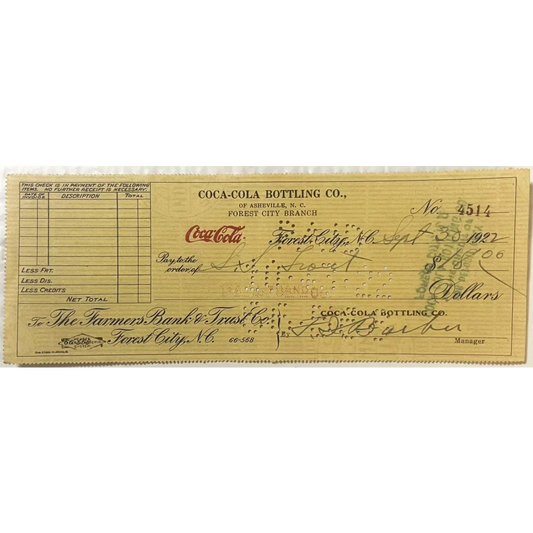 THIS CHECK IS IN PAYMENT OF THE FOLLOWING
ITEMS. NO FURTHER RECEIPT IS NECESSARY.
DATE OF INVOICE DESCRIPTION TOTAL
LESS FRT.
LESS DIS.
LESS CREDITS
NET TOTAL
COCA-COLA BOTTLING CO.,
OF ASHEVILLE, N. C.
FOREST CITY BRANCH
No. 4514
Coca-Cola Forest City, N.C. Sept 30 1922
Pay to the
order of $
Dollars
To The Farmers Bank & Trust Co.
Forest City, N.C. 66-568
COCA-COLA BOTTLING CO.
Barber
Manager